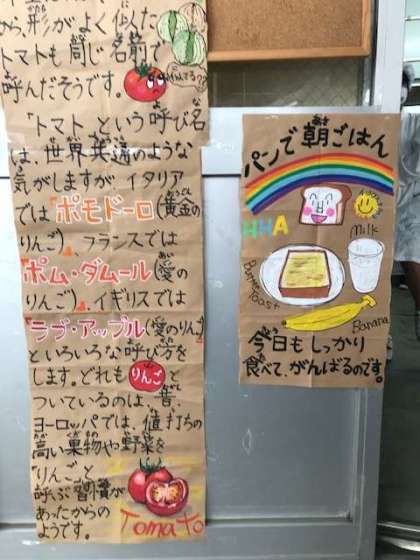 から、形がよく似た
トマトも同じ名前で
呼んだそうです。
「トマト」という呼び名
は、世界共通のような
気がしますが、イタリア
では「ポモドーロ(黄金の
りんご)」、フランスでは
「ポム・ダムール(愛の
りんご)」、イギリスでは
「ラブ・アップル(愛のりんご)」
といろいろな呼び方を
します。どれもりんごと
ついているのは、昔、
ヨーロッパでは、値打ちの
高い果物や野菜を
「りんご」と
呼ぶ習慣が
あったからの
ようです。
Tomato
パンで朝ごはん
HHA
Milk
Toast
Banana
今日もしっかり
食べて、がんばるのです。